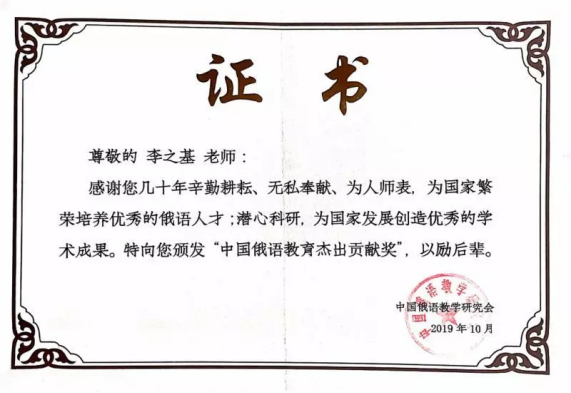 证书
尊敬的 李之基 老师：
感谢您几十年辛勤耕耘、无私奉献、为人师表，为国家繁
荣培养优秀的俄语人才；潜心科研，为国家发展创造优秀的学
术成果。特向您颁发“中国俄语教育杰出贡献奖”，以励后辈。
中国俄语教学研究会
2019 年 10 月